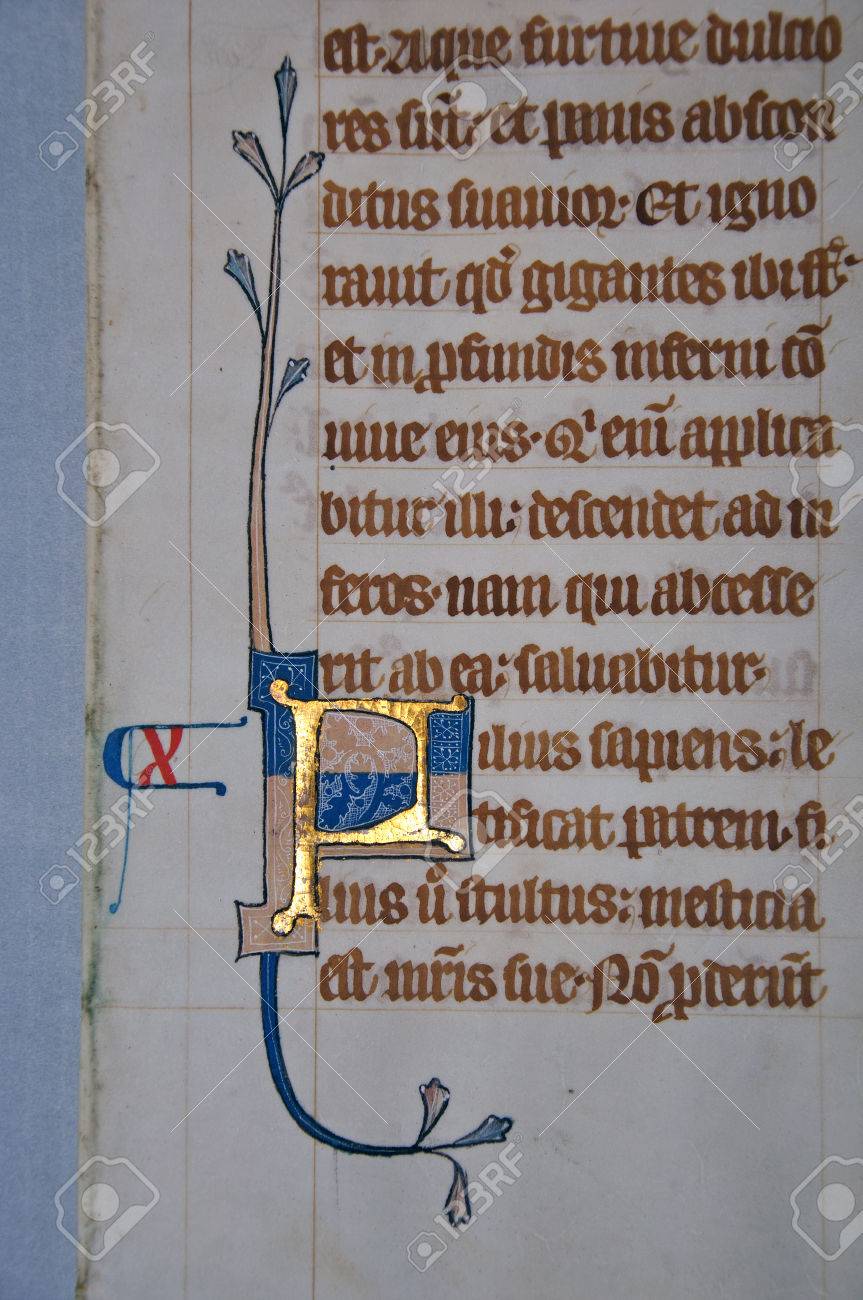 est. Aque furtiue dulcio
res sūt: et panis abscon
ditus suauior. Et igno
rauit qd̄ gigantes ibi ss̄t.
et in ꝓfundis inferni cō
uiue eius. Qⁱ em̄ applica
bitur illi: descendet ad in
feros. nam qui abcesse
rit ab ea: saluabitur.
X
Filius sapiens: le
tificat patrem. fi
lius ū stultus: mesticia
est mr̄is sue. Nō ꝓderūt